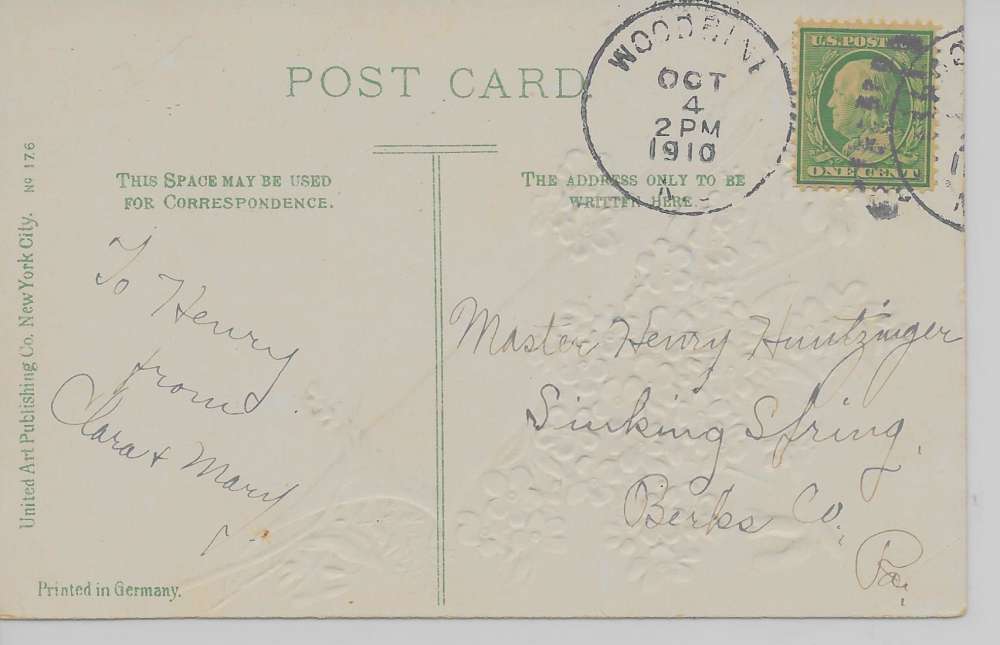 POST CARD
WOODBIN
OCT
4
2 PM
1910
U.S. POST
ONE CENT
THIS SPACE MAY BE USED
FOR CORRESPONDENCE.
THE ADDRESS ONLY TO BE
WRITTEN HERE.
To Henry
from
Clara & Mary
Master Henry Huntzinger
Sinking Spring,
Berks Co.,
Pa.,
United Art Publishing Co, New York City. No 176
Printed in Germany.